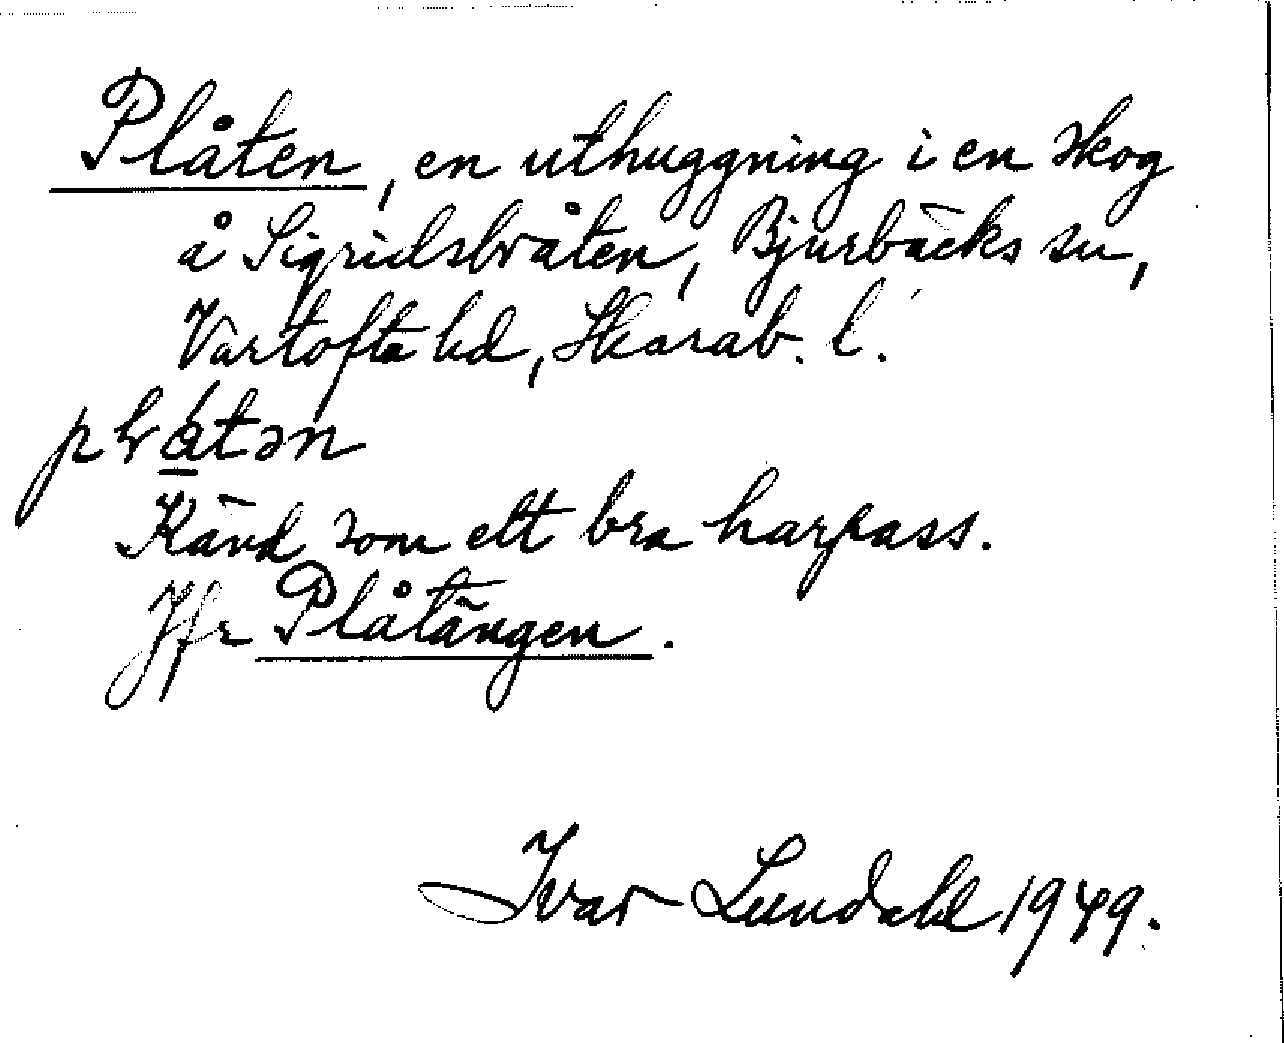 Plåten, en uthuggning i en skog
å Sigridsbråten, Bjurbäcks sn,
Vartofta hd, Skarab. l.
Känd som ett bra harpass.
Jfr Plåtängen.
Ivar Lundahl 1949.